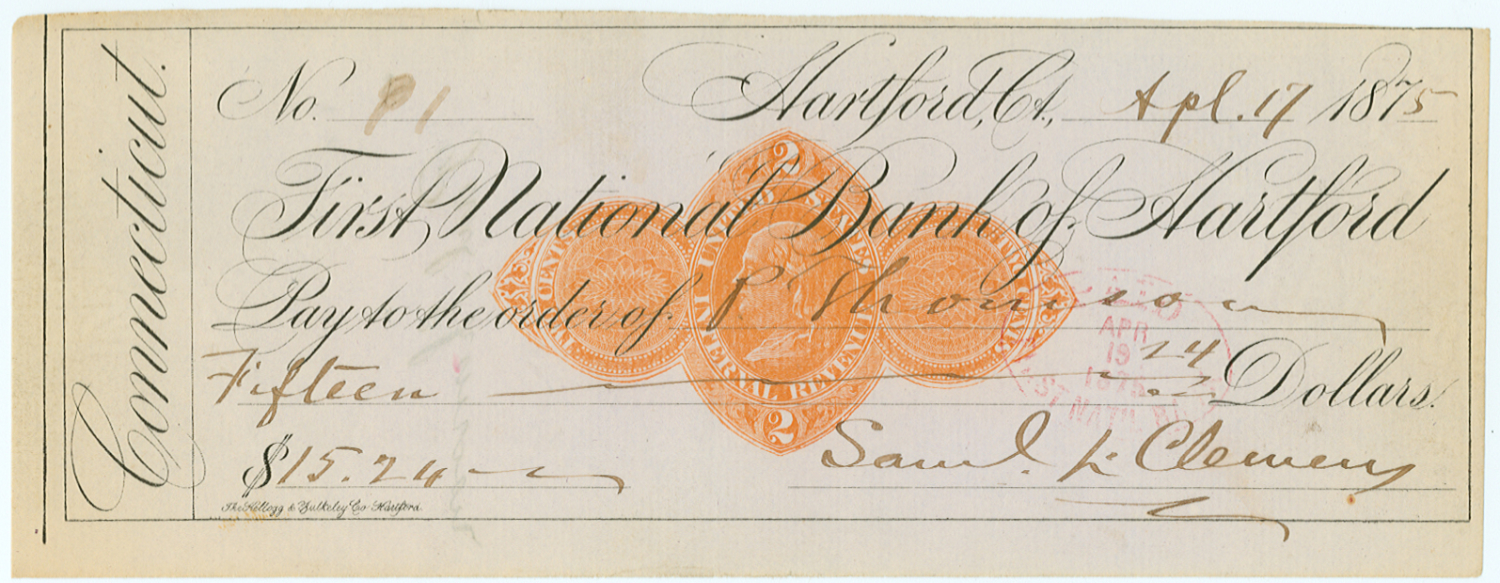 Connecticut.
No. 91 Hartford, Ct., Apl. 17 1875
First National Bank of Hartford
Pay to the order of P Thomson
Fifteen 24 Dollars.
$15.24
Saml. L. Clemens
The Kellogg & Bulkeley Co. Hartford.
2
UNITED STATES
INTERNAL REVENUE
TWO CENTS
TWO CENTS
2
PAID
APR
19
1875
1ST NAT'L BK